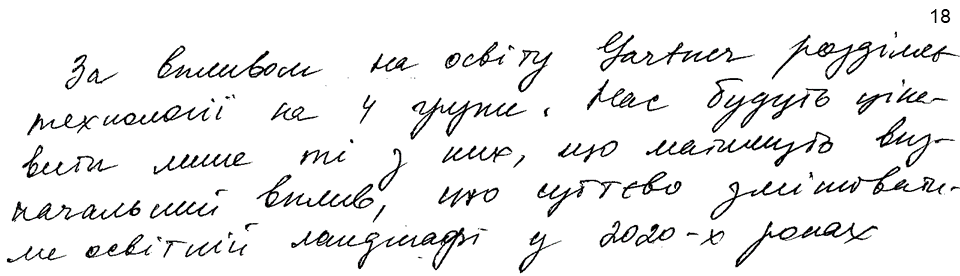 18
За впливом на освіту Gartner розділяє
технології на 4 групи. Нас будуть ціка-
вити лише ті з них, що матимуть виз-
начальний вплив, що суттєво змінювати-
ме освітній ландшафт у 2020-х роках